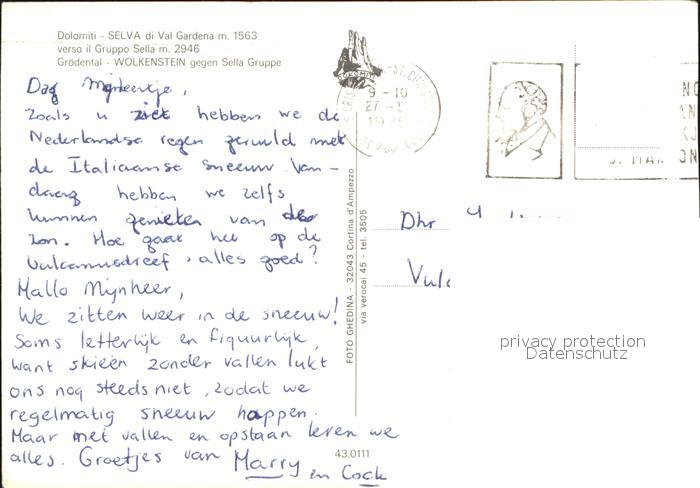 Dolomiti - SELVA di Val Gardena m. 1563
verso il Gruppo Sella m. 2946
Grödental - WOLKENSTEIN gegen Sella Gruppe
Dag Mijnheertje,
Zoals u ziet hebben we de
Nederlandse regen geruild met
de Italiaanse sneeuw. Van-
daag hebben we zelfs
kunnen genieten van de
zon. Hoe gaat het op de
Vulcanusdreef, alles goed?
Hallo Mijnheer,
We zitten weer in de sneeuw!
Soms letterlijk en figuurlijk,
want skieën zonder vallen lukt
ons nog steeds niet, zodat we
regelmatig sneeuw happen.
Maar met vallen en opstaan leren we
alles. Groetjes van Marry
en Cock
43.0111
FOTO GHEDINA - 32043 Cortina d'Ampezzo
via verocai 45 - tel. 3505
9 - 10
27 - I
Dhr
Vulc
privacy protection
Datenschutz